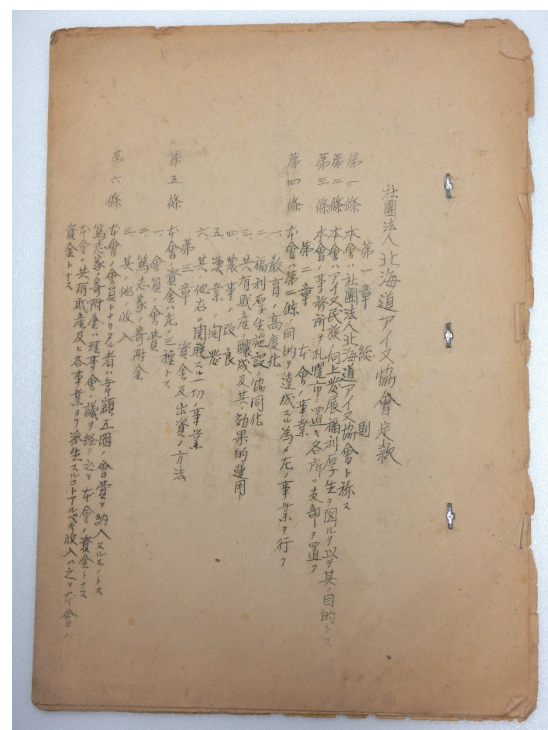 社團法人北海道アイヌ協會定款
第一章 總則
第一條 本會ハ社團法人北海道アイヌ協會ト称ス
第二條 本會ハアイヌ民族ノ向上発展福利厚生ヲ図ルヲ以テ其ノ目的トス
第三條 本會ノ事務所ヲ札幌市ニ置キ各所ニ支部ヲ置ク
第二章 本會ノ事業
第四條 本會ハ第二條ノ目的ヲ達成スル為メ左ノ事業ヲ行フ
一、教育ノ高度化
二、福利厚生施設ノ協同化
三、共有財産ノ醸成及其ノ効果的運用
四、農事ノ改良
五、漁業ノ開発
六、其ノ他右ニ関聯スル一切ノ事業
第三章 資金及出資ノ方法
第五條 本會ノ資金ハ左ノ三種トス
一、會員ノ會費
二、篤志家ノ寄附金
三、其ノ他收入
第六條 本會ノ會員トナリタル者ハ年額五圓ノ會費ヲ納入スルモノトス
篤志家ノ寄附金ハ理事會ノ議ヲ経テ之ヲ本會ノ資金トナス
本會ノ共有財産及ヒ各事業ヨリ派生スルコトアルベキ收入ハ之ヲ本會ノ
資金トナス